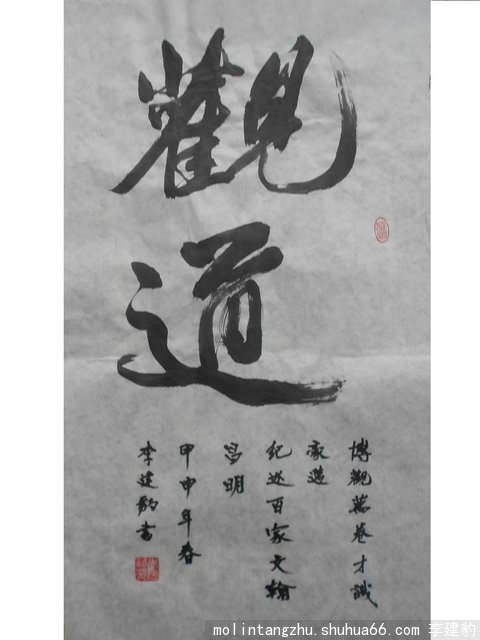 觀
道
博觀萬卷才識
豪邁
紀述百家文翰
昌明
甲申年春
李建豹書
molintangzhu.shuhua66.com 李建豹